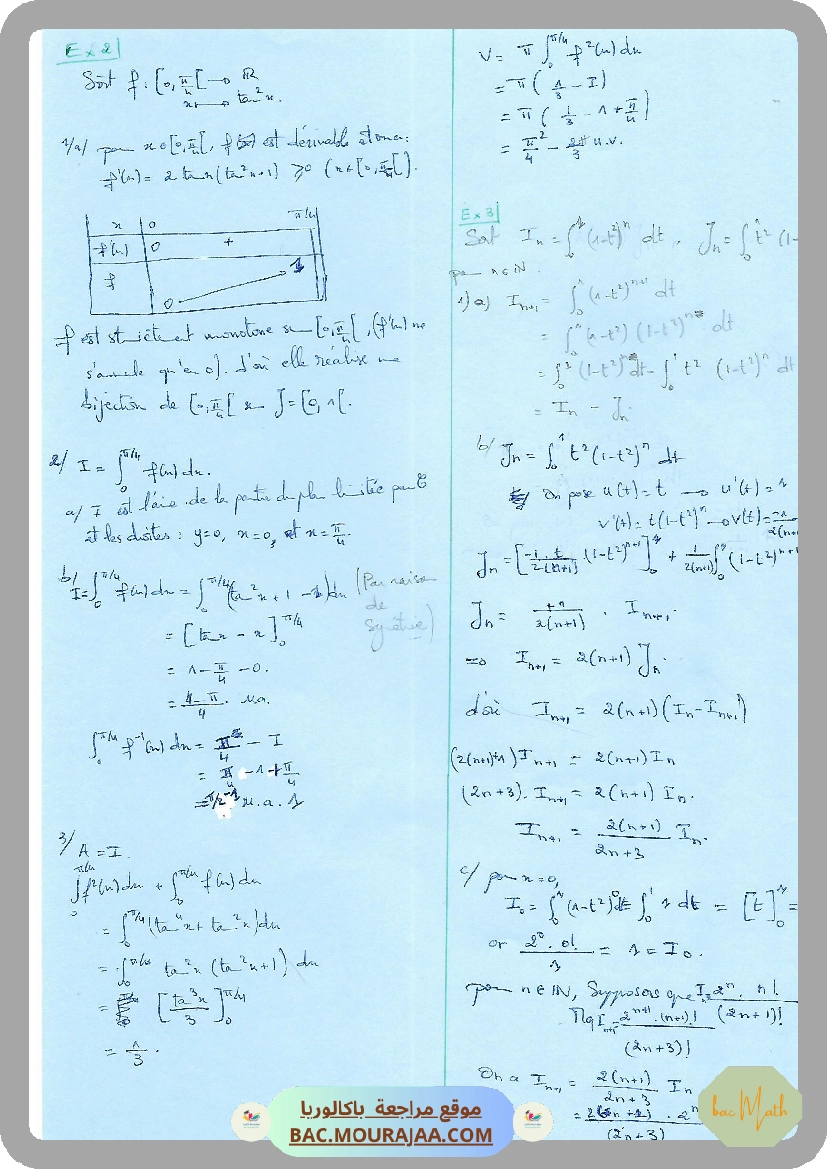 Ex 2
Soit f : [0, π/4[ → ℝ
x ↦ tan²x.
1/a) pour x∈[0, π/4[, f est dérivable et on a :
f'(x) = 2 tan x (tan²x+1) ≥ 0 (x∈[0, π/4[).
x 0 π/4
f'(x) 0 +
f 0 1
f est strictement monotone sur [0, π/4[, (f'(x) ne
s'annule qu'en 0). d'où elle réalise une
bijection de [0, π/4[ sur J = [0, 1[.
2/ I = ∫₀^{π/4} f(x) dx.
a/ I est l'aire de la partie du plan limitée par ℰ
et les droites : y=0, x=0, et x = π/4.
b/ I = ∫₀^{π/4} f(x) dx = ∫₀^{π/4} (tan²x + 1 - 1) dx (Par raison
de
symétrie)
= [tan x - x]₀^{π/4}
= 1 - π/4 - 0.
= (4-π)/4 u.a.
∫₀^{π/4} f⁻¹(x) dx = π/4 - I
= π/4 - 1 + π/4
= π/2 - 1 u.a.
3/ A = I.
∫₀^{π/4} f²(x) dx + ∫₀^{π/4} f(x) dx
= ∫₀^{π/4} (tan⁴x + tan²x) dx
= ∫₀^{π/4} tan²x (tan²x+1) dx
= [tan³x / 3]₀^{π/4}
= 1/3.
V = π ∫₀^{π/4} f²(x) dx
= π (1/3 - I)
= π (1/3 - 1 + π/4)
= π²/4 - 2π/3 u.v.
Ex 3
Soit Iₙ = ∫₀¹ (1-t²)ⁿ dt, Jₙ = ∫₀¹ t² (1-
pour n∈ℕ.
1) a) Iₙ₊₁ = ∫₀¹ (1-t²)ⁿ⁺¹ dt
= ∫₀¹ (1-t²) (1-t²)ⁿ dt
= ∫₀¹ (1-t²)ⁿ dt - ∫₀¹ t² (1-t²)ⁿ dt
= Iₙ - Jₙ
b/ Jₙ = ∫₀¹ t² (1-t²)ⁿ dt
On pose u(t) = t → u'(t) = 1
v'(t) = t(1-t²)ⁿ → v(t) = -1/2(n+
Jₙ = [-1·t/2(n+1) (1-t²)ⁿ⁺¹]₀¹ + 1/2(n+1) ∫₀¹ (1-t²)ⁿ⁺¹
Jₙ = 1/2(n+1) . Iₙ₊₁.
⇒ Iₙ₊₁ = 2(n+1) Jₙ.
d'où Iₙ₊₁ = 2(n+1) (Iₙ - Iₙ₊₁)
(2(n+1)+1) Iₙ₊₁ = 2(n+1) Iₙ
(2n+3). Iₙ₊₁ = 2(n+1) Iₙ.
Iₙ₊₁ = 2(n+1)/(2n+3) Iₙ.
c/ pour n=0,
I₀ = ∫₀¹ (1-t²)⁰ dt = ∫₀¹ 1 dt = [t]₀¹ =
or 2⁰ . 0!/1 = 1 = I₀.
pour n∈ℕ, Supposons que Iₙ = 2ⁿ . n!/(2n+1)!
Mq Iₙ₊₁ = 2ⁿ⁺¹ . (n+1)!/(2n+3)!
On a Iₙ₊₁ = 2(n+1)/(2n+3) Iₙ
bac Math
موقع مراجعة باكالوريا
BAC.MOURAJAA.COM